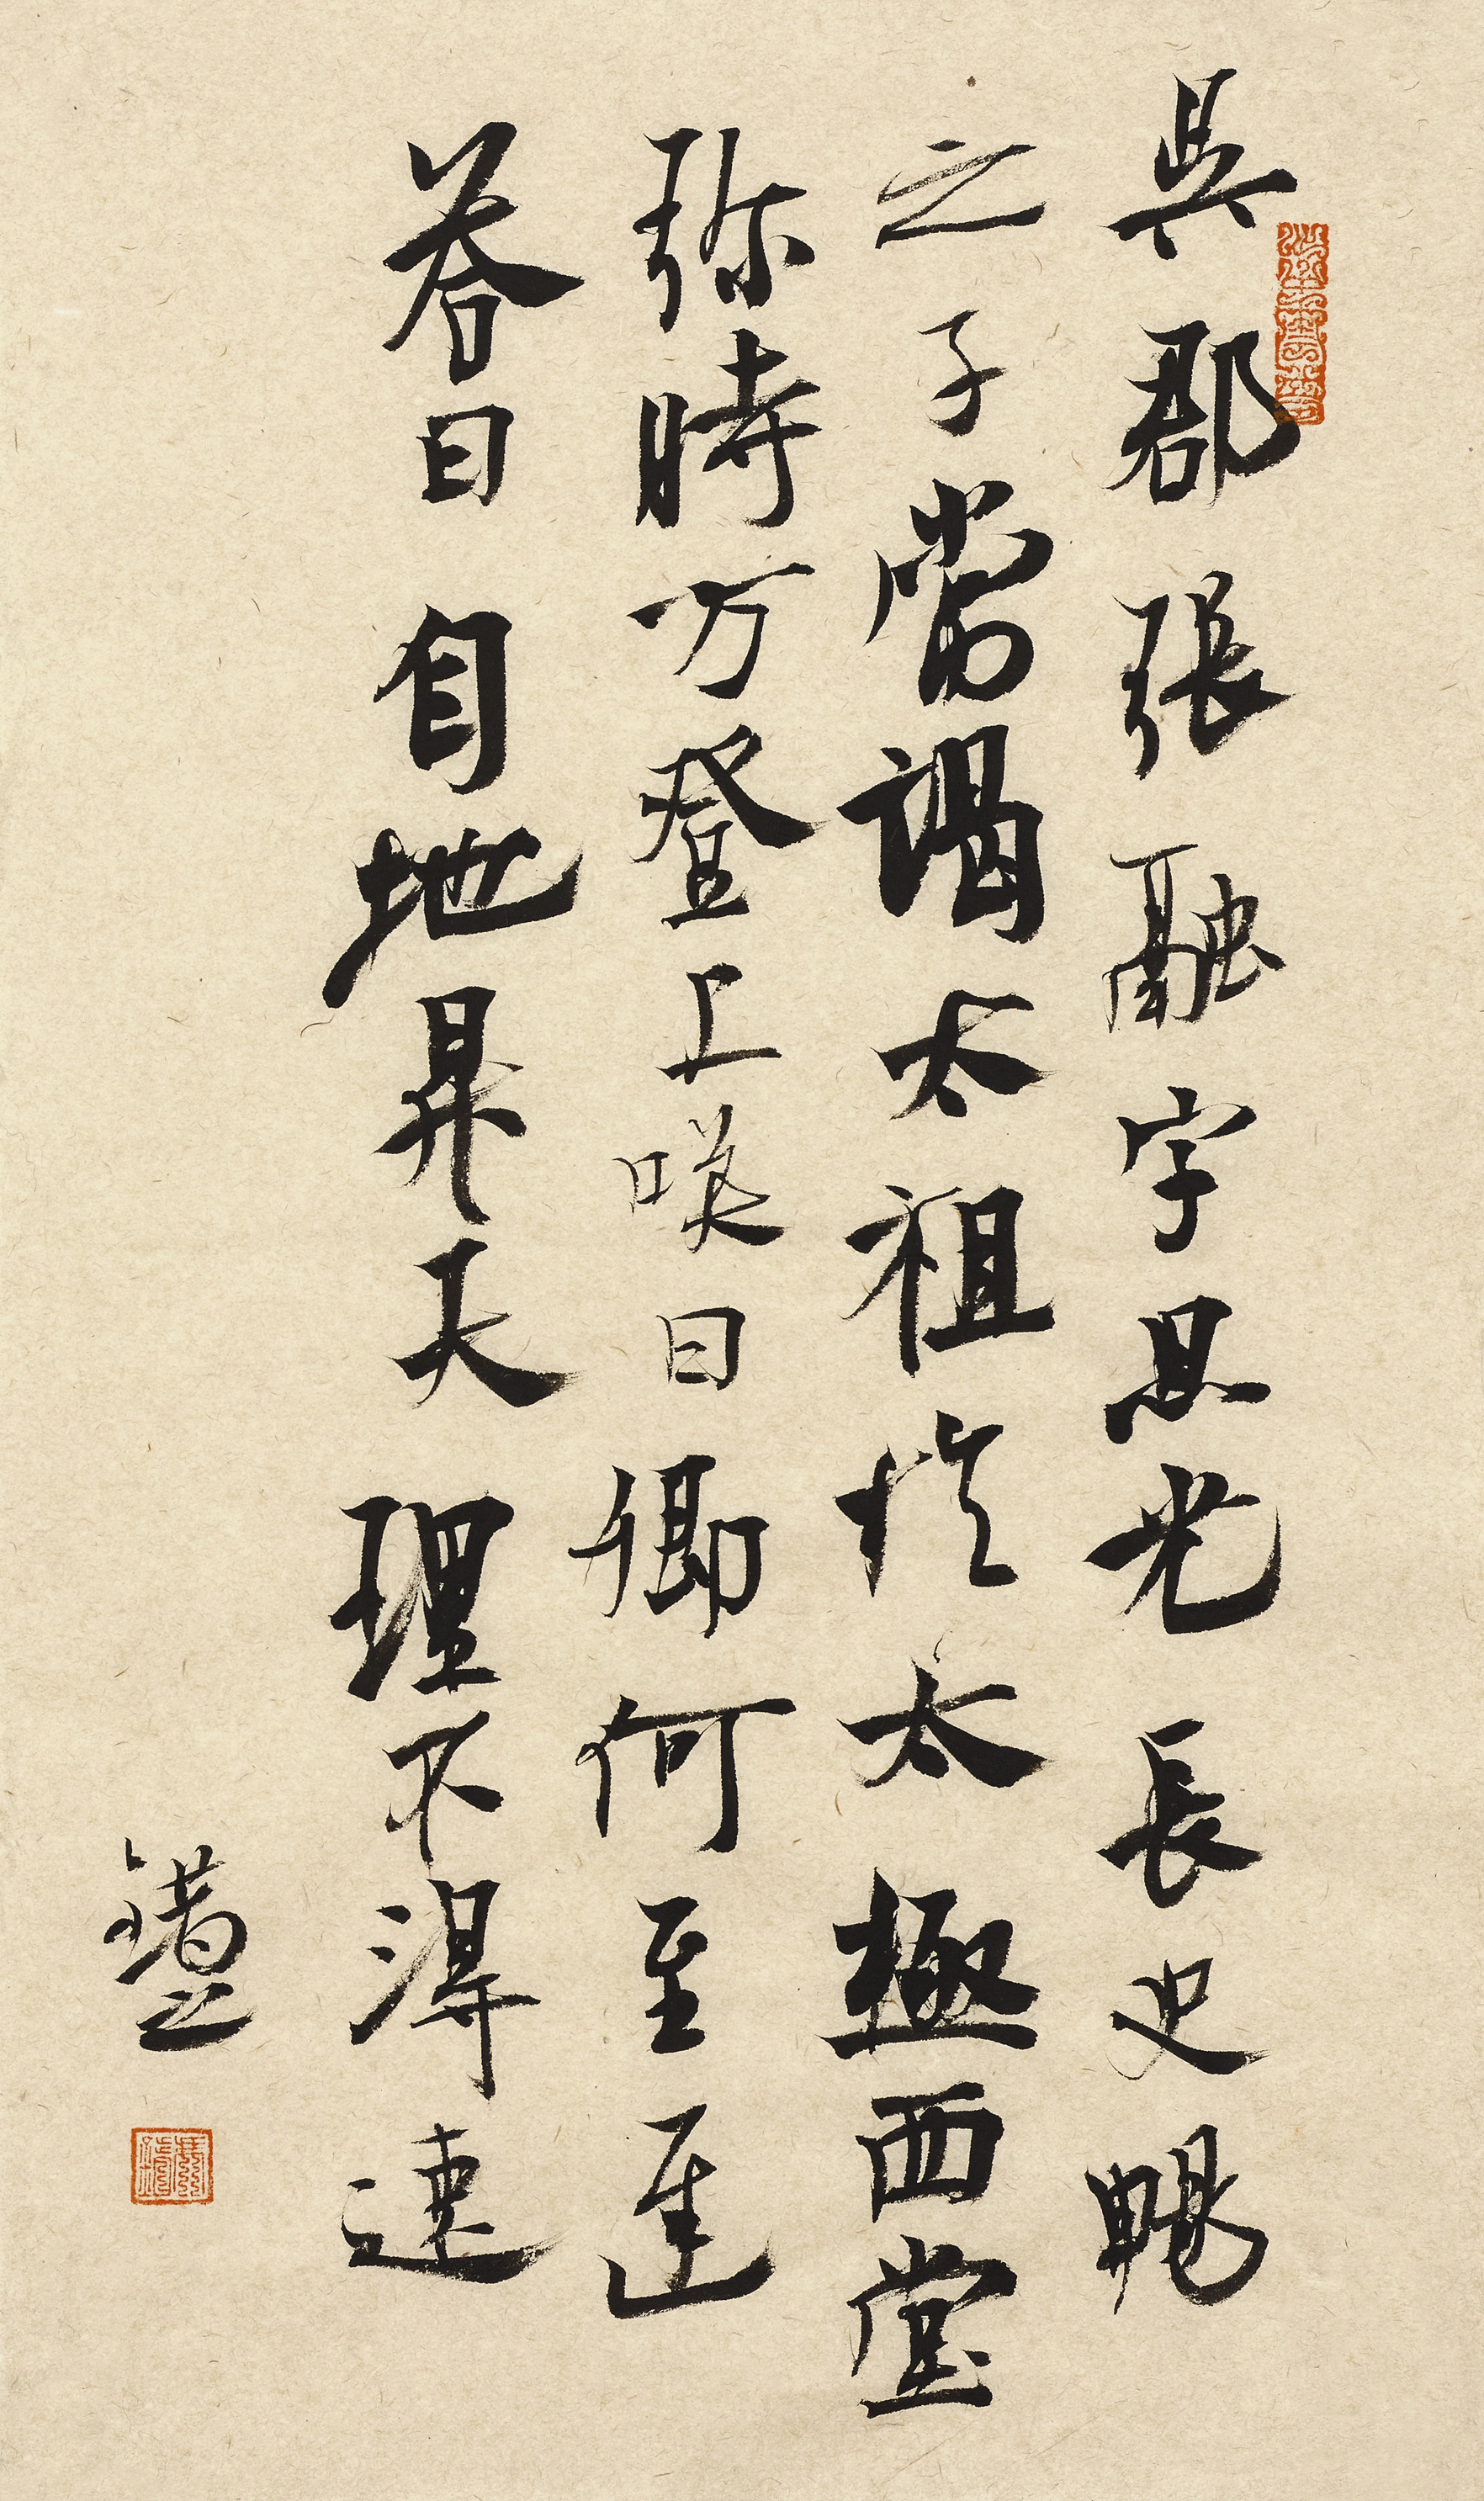 吳郡張融字思光長史暢
之子嘗謁太祖於太極西堂
弥時方登上嘆曰卿何至遲
答曰自地昇天理不得速